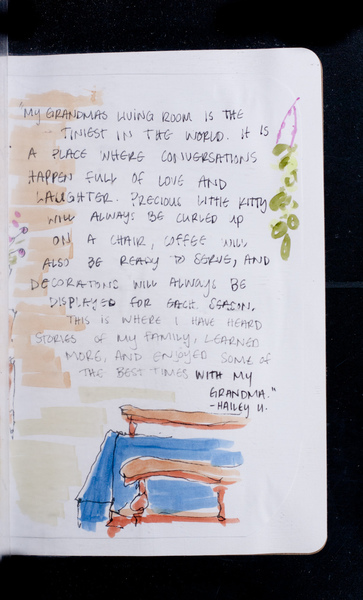 "MY GRANDMAS LIVING ROOM IS THE
TINIEST IN THE WORLD. IT IS
A PLACE WHERE CONVERSATIONS
HAPPEN FULL OF LOVE AND
LAUGHTER. PRECIOUS LITTLE KITTY
WILL ALWAYS BE CURLED UP
ON A CHAIR, COFFEE WILL
ALSO BE READY TO SERVE, AND
DECORATIONS WILL ALWAYS BE
DISPLAYED FOR EACH SEASON.
THIS IS WHERE I HAVE HEARD
STORIES OF MY FAMILY, LEARNED
MORE, AND ENJOYED SOME OF
THE BEST TIMES WITH MY
GRANDMA."
-HAILEY U.